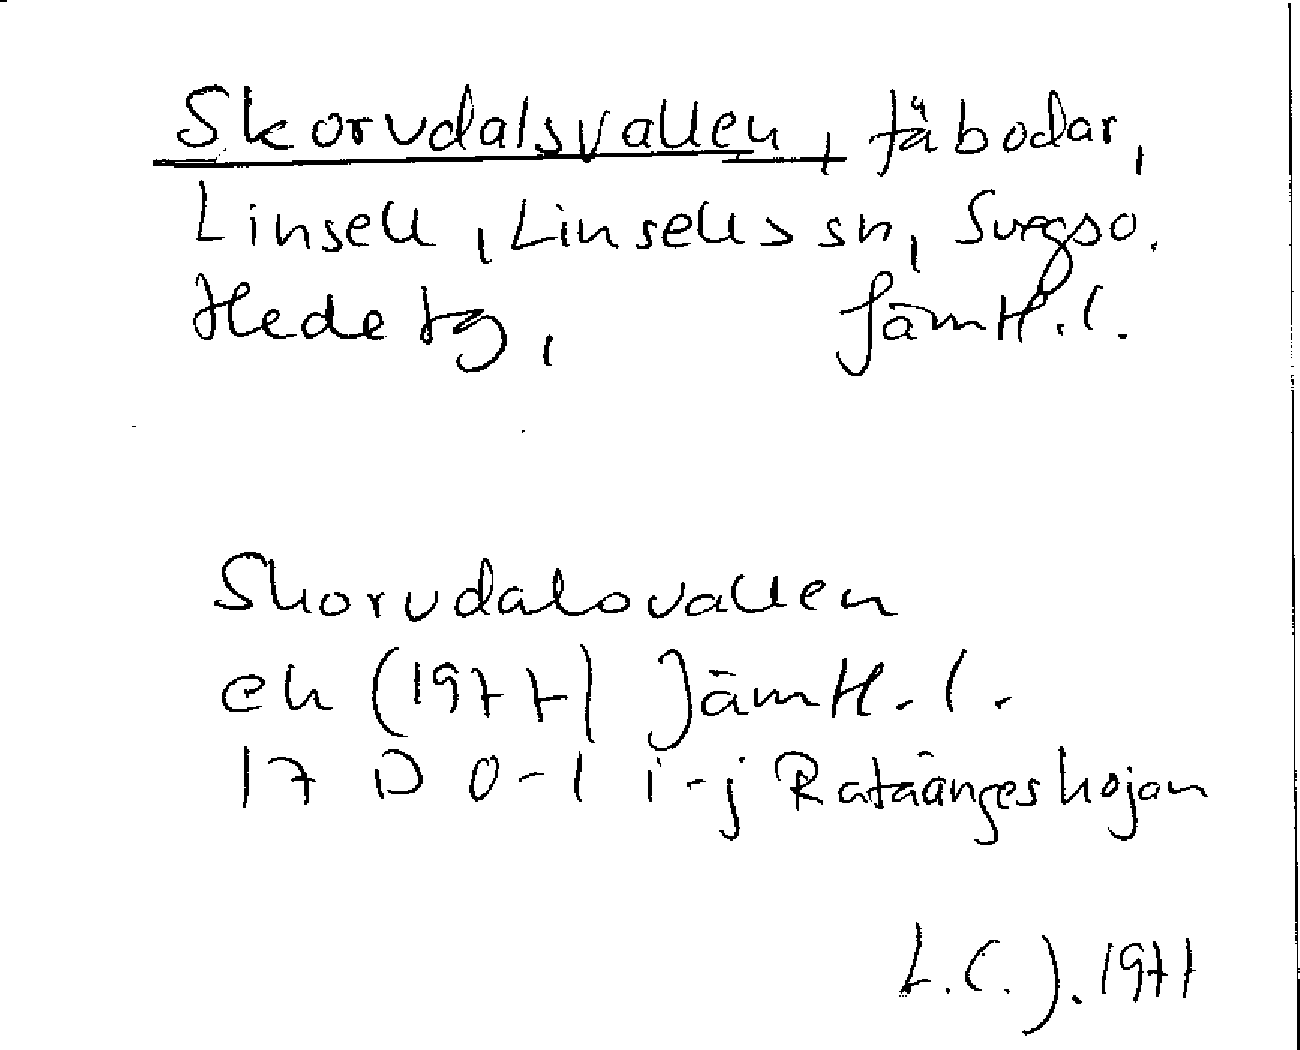 Skorvdalsvallen, fäbodar,
Linsell, Linsells sn, Svegs o.
Hede tg, Jämtl. l.
Skorvdalsvallen
ek (1977) Jämtl. l.
17 D 0-1 i-j Rataänges
L.C.J. 1977